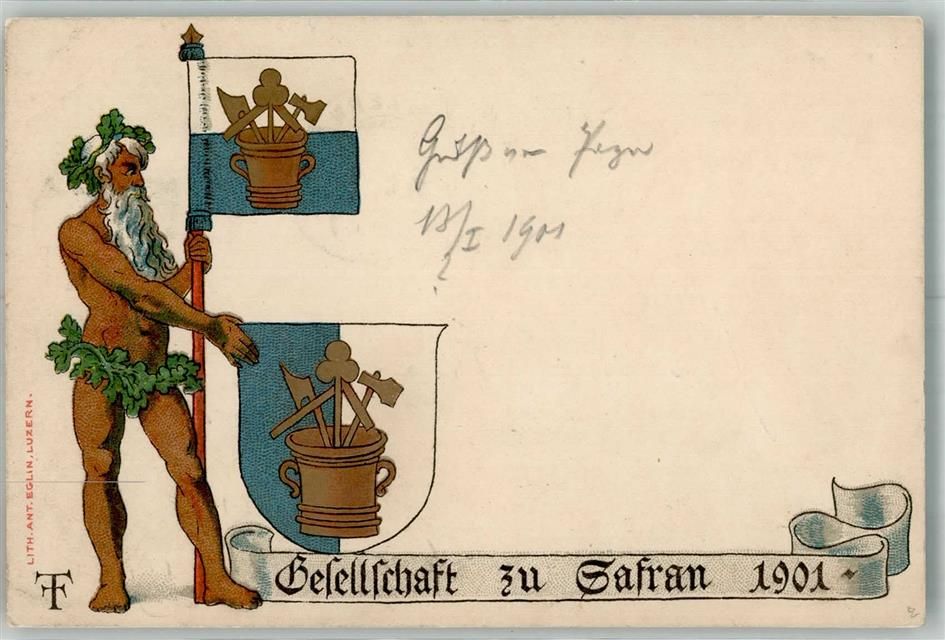 Gruß von
13/I 1901
LITH. ANT. EGLIN, LUZERN.
TF
Gesellschaft zu Safran 1901